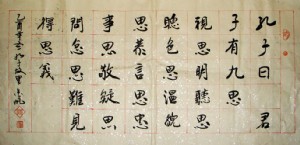 孔子曰君
子有九思
視思明聽思
聰色思溫貌
思恭言思忠
事思敬疑思
問忿思難見
得思義
孔子故里